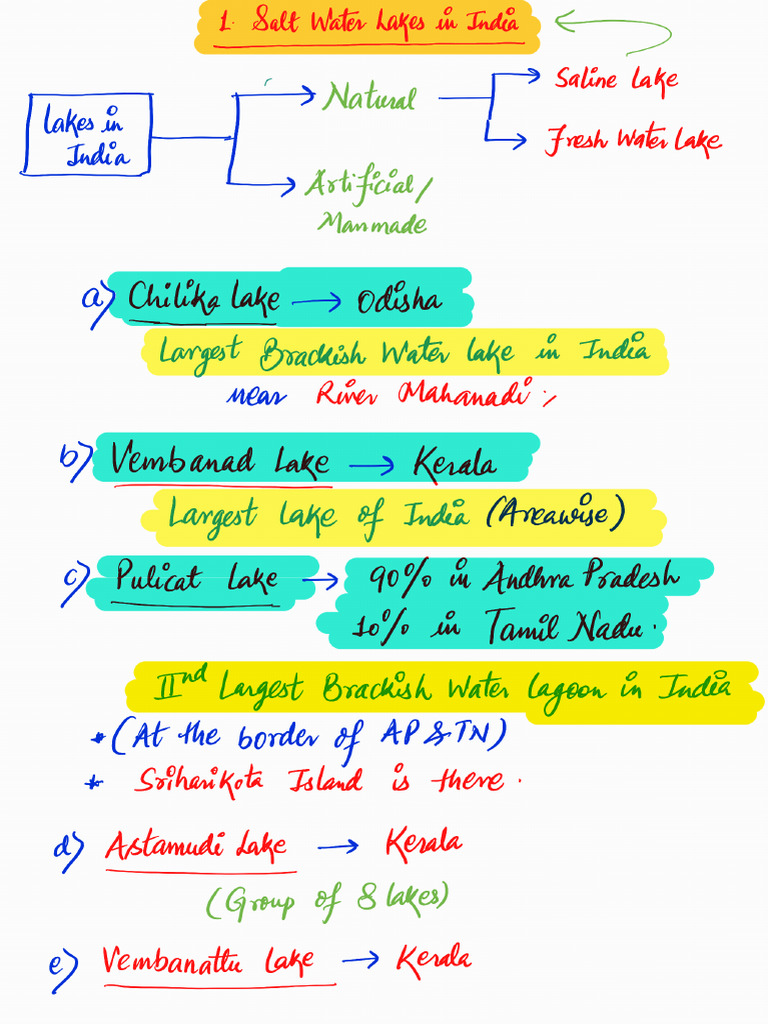 1. Salt Water Lakes in India
Lakes in
India
Natural
Saline Lake
Fresh Water Lake
Artificial/
Manmade
a) Chilika Lake → Odisha
Largest Brackish Water lake in India
near River Mahanadi
b) Vembanad Lake → Kerala
Largest Lake of India (Areawise)
c) Pulicat Lake → 90% in Andhra Pradesh
10% in Tamil Nadu.
IInd Largest Brackish Water Lagoon in India
* (At the border of AP & TN)
* Sriharikota Island is there.
d) Astamudi Lake → Kerala
(Group of 8 lakes)
e) Vembanattu Lake → Kerala